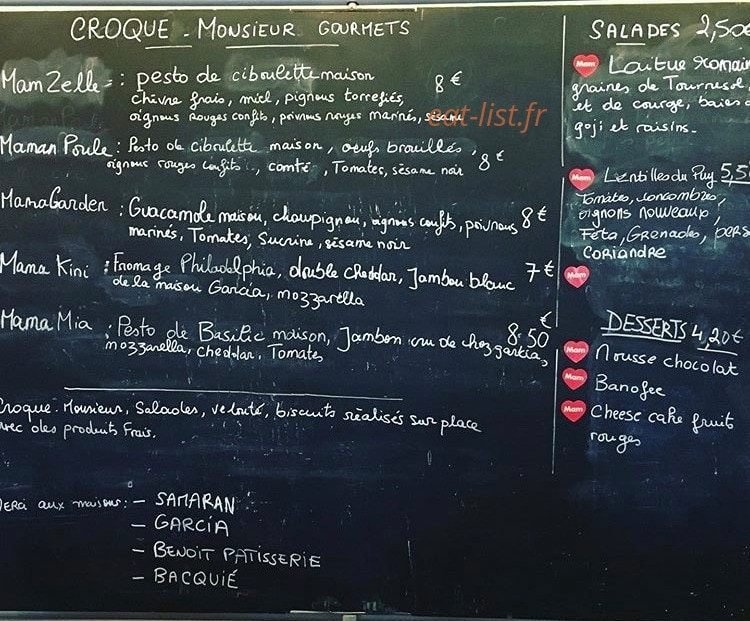 CROQUE - MONSIEUR GOURMETS
MamZelle : pesto de ciboulette maison 8 €
chèvre frais, miel, pignons torrefiés,
oignons rouges confits, poivrons rouges marinés, sésame
eat-list.fr
Maman Poule : Pesto de ciboulette maison, oeufs brouillés,
oignons rouges confits, comté, Tomates, sésame noir 8 €
MamaGarden : Guacamole maison, champignon, oignons confits, poivrons 8 €
marinés, Tomates, Sucrine, sésame noir
Mama Kini : Fromage Philadelphia, double cheddar, Jambon blanc 7 €
de la maison Garcia, mozzarella
Mama Mia : Pesto de Basilic maison, Jambon cru de chez garcia, 8.50 €
mozzarella, cheddar, Tomates
Croque-Monsieur, Salades, velouté, biscuits réalisés sur place
avec des produits Frais.
Merci aux maisons : - SAMARAN
- GARCIA
- BENOIT PATISSERIE
- BACQUIÉ
SALADES 2,50€
Mam Laitue romain
graines de Tournesol
et de courge, baies de
goji et raisins.
Mam Lentilles du Puy 5,50
Tomates, concombres,
oignons nouveaux,
Feta, Grenades, pers
CORIANDRE
Mam
DESSERTS 4,20€
Mam Mousse chocolat
Mam Banofee
Mam Cheese cake fruit
rouges